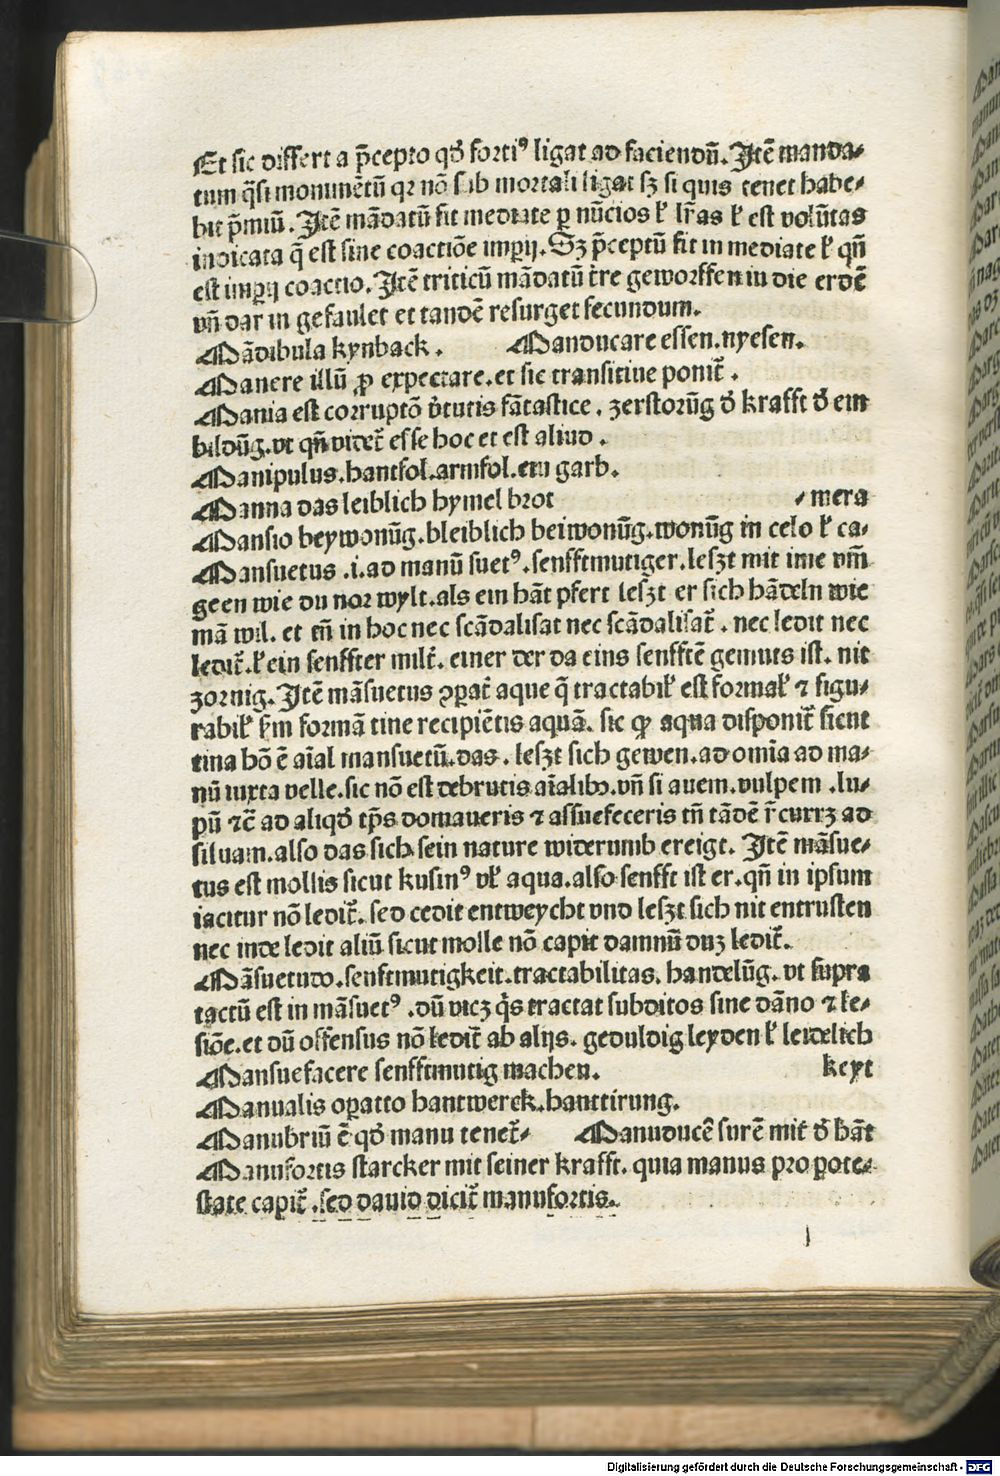 Et sic differt a p̄cepto qď forti⁹ ligat ad faciendū. Itē manda⸗
tum q̄si monumētū qz nō sub mortali ligat sꝫ si quis tenet habe⸗
bit p̄miū. Itē mādatū fit mediate ꝑ nūcios ł lr̄as ł est volūtas
indicata q̄ est sine coactiōe impij. Sꝫ p̄ceptū fit in mediate ł qn̄
est impij coactio. Itē triticū mādatū tr̄re geworffen in die erdē
vn̄ dar in gefaulet et tandē resurget fecundum.
Mādibula kynback. Manducare essen.nyesen.
Manere illū ꝓ expectare.et sic transitiue ponit̄.
Mania est corruptō v̄tutis fātastice. zerstorūg ď krafft ď ein
bildūg.vt qn̄ videt̄ esse hoc et est aliud.
Manipulus.hantfol.armfol.ein garb.
Manna das leiblich hymel brot ⸗mera
Mansio beywonūg.bleiblich beiwonūg.wonūg in celo ł ca⸗
Mansuetus .i.ad manū suet⁹.senfftmutiger.leszt mit ime vm̄
geen wie du nor wylt.als ein hāt pfert leszt er sich hādeln wie
mā wil. et tn̄ in hoc nec scādalisat nec scādalisat̄. nec ledit nec
ledit̄.ł ein senffter milt̄. einer der da eins senfftē gemuts ist. nit
zornig. Itē māsuetus ꝯpat̄ aque q̄ tractabił est formał ⁊ figu⸗
rabił ẜm formā tine recipiētis aquā. sic ꝙ aqua disponit̄ sicut
tina hō ē aīal mansuetū.das. leszt sich gewen.ad omīa ad ma⸗
nū iuxta velle.sic nō est de brutis aīalibꝫ.vn̄ si auem.vulpem .lu⸗
pū ⁊c̄ ad aliqď tp̄s domaueris ⁊ assuefeceris tn̄ tādē r̄currꝫ ad
siluam.also das sich sein nature widerumb ereigt. Itē māsue⸗
tus est mollis sicut kusin⁹ vł aqua.also senfft ist er.qn̄ in ipsum
iacitur nō ledit̄. sed cedit entweycht vnd leszt sich nit entrusten
nec inde ledit aliū sicut molle nō capit damnū duꝫ ledit̄.
Māsuetudo.senftmutigkeit.tractabilitas. handelūg. vt supra
tactū est in māsuet⁹ .dū vicꝫ q̇s tractat subditos sine dāno ⁊ le⸗
siōe.et dū offensus nō ledit̄ ab alijs. geduldig leyden ł leidelich
Mansuefacere senfftmutig machen. keyt
Manualis oꝑatto hantwerck.hanttirung.
Manubriū ē qď manu tenet̄⸗ Manuducē furē mit ď hāt
Manufortis starcker mit seiner krafft. quia manus pro ꝑote⸗
state capit̄ .sed dauid dicit̄ manufortis.
l
Digitalisierung gefördert durch die Deutsche Forschungsgemeinschaft - DFG